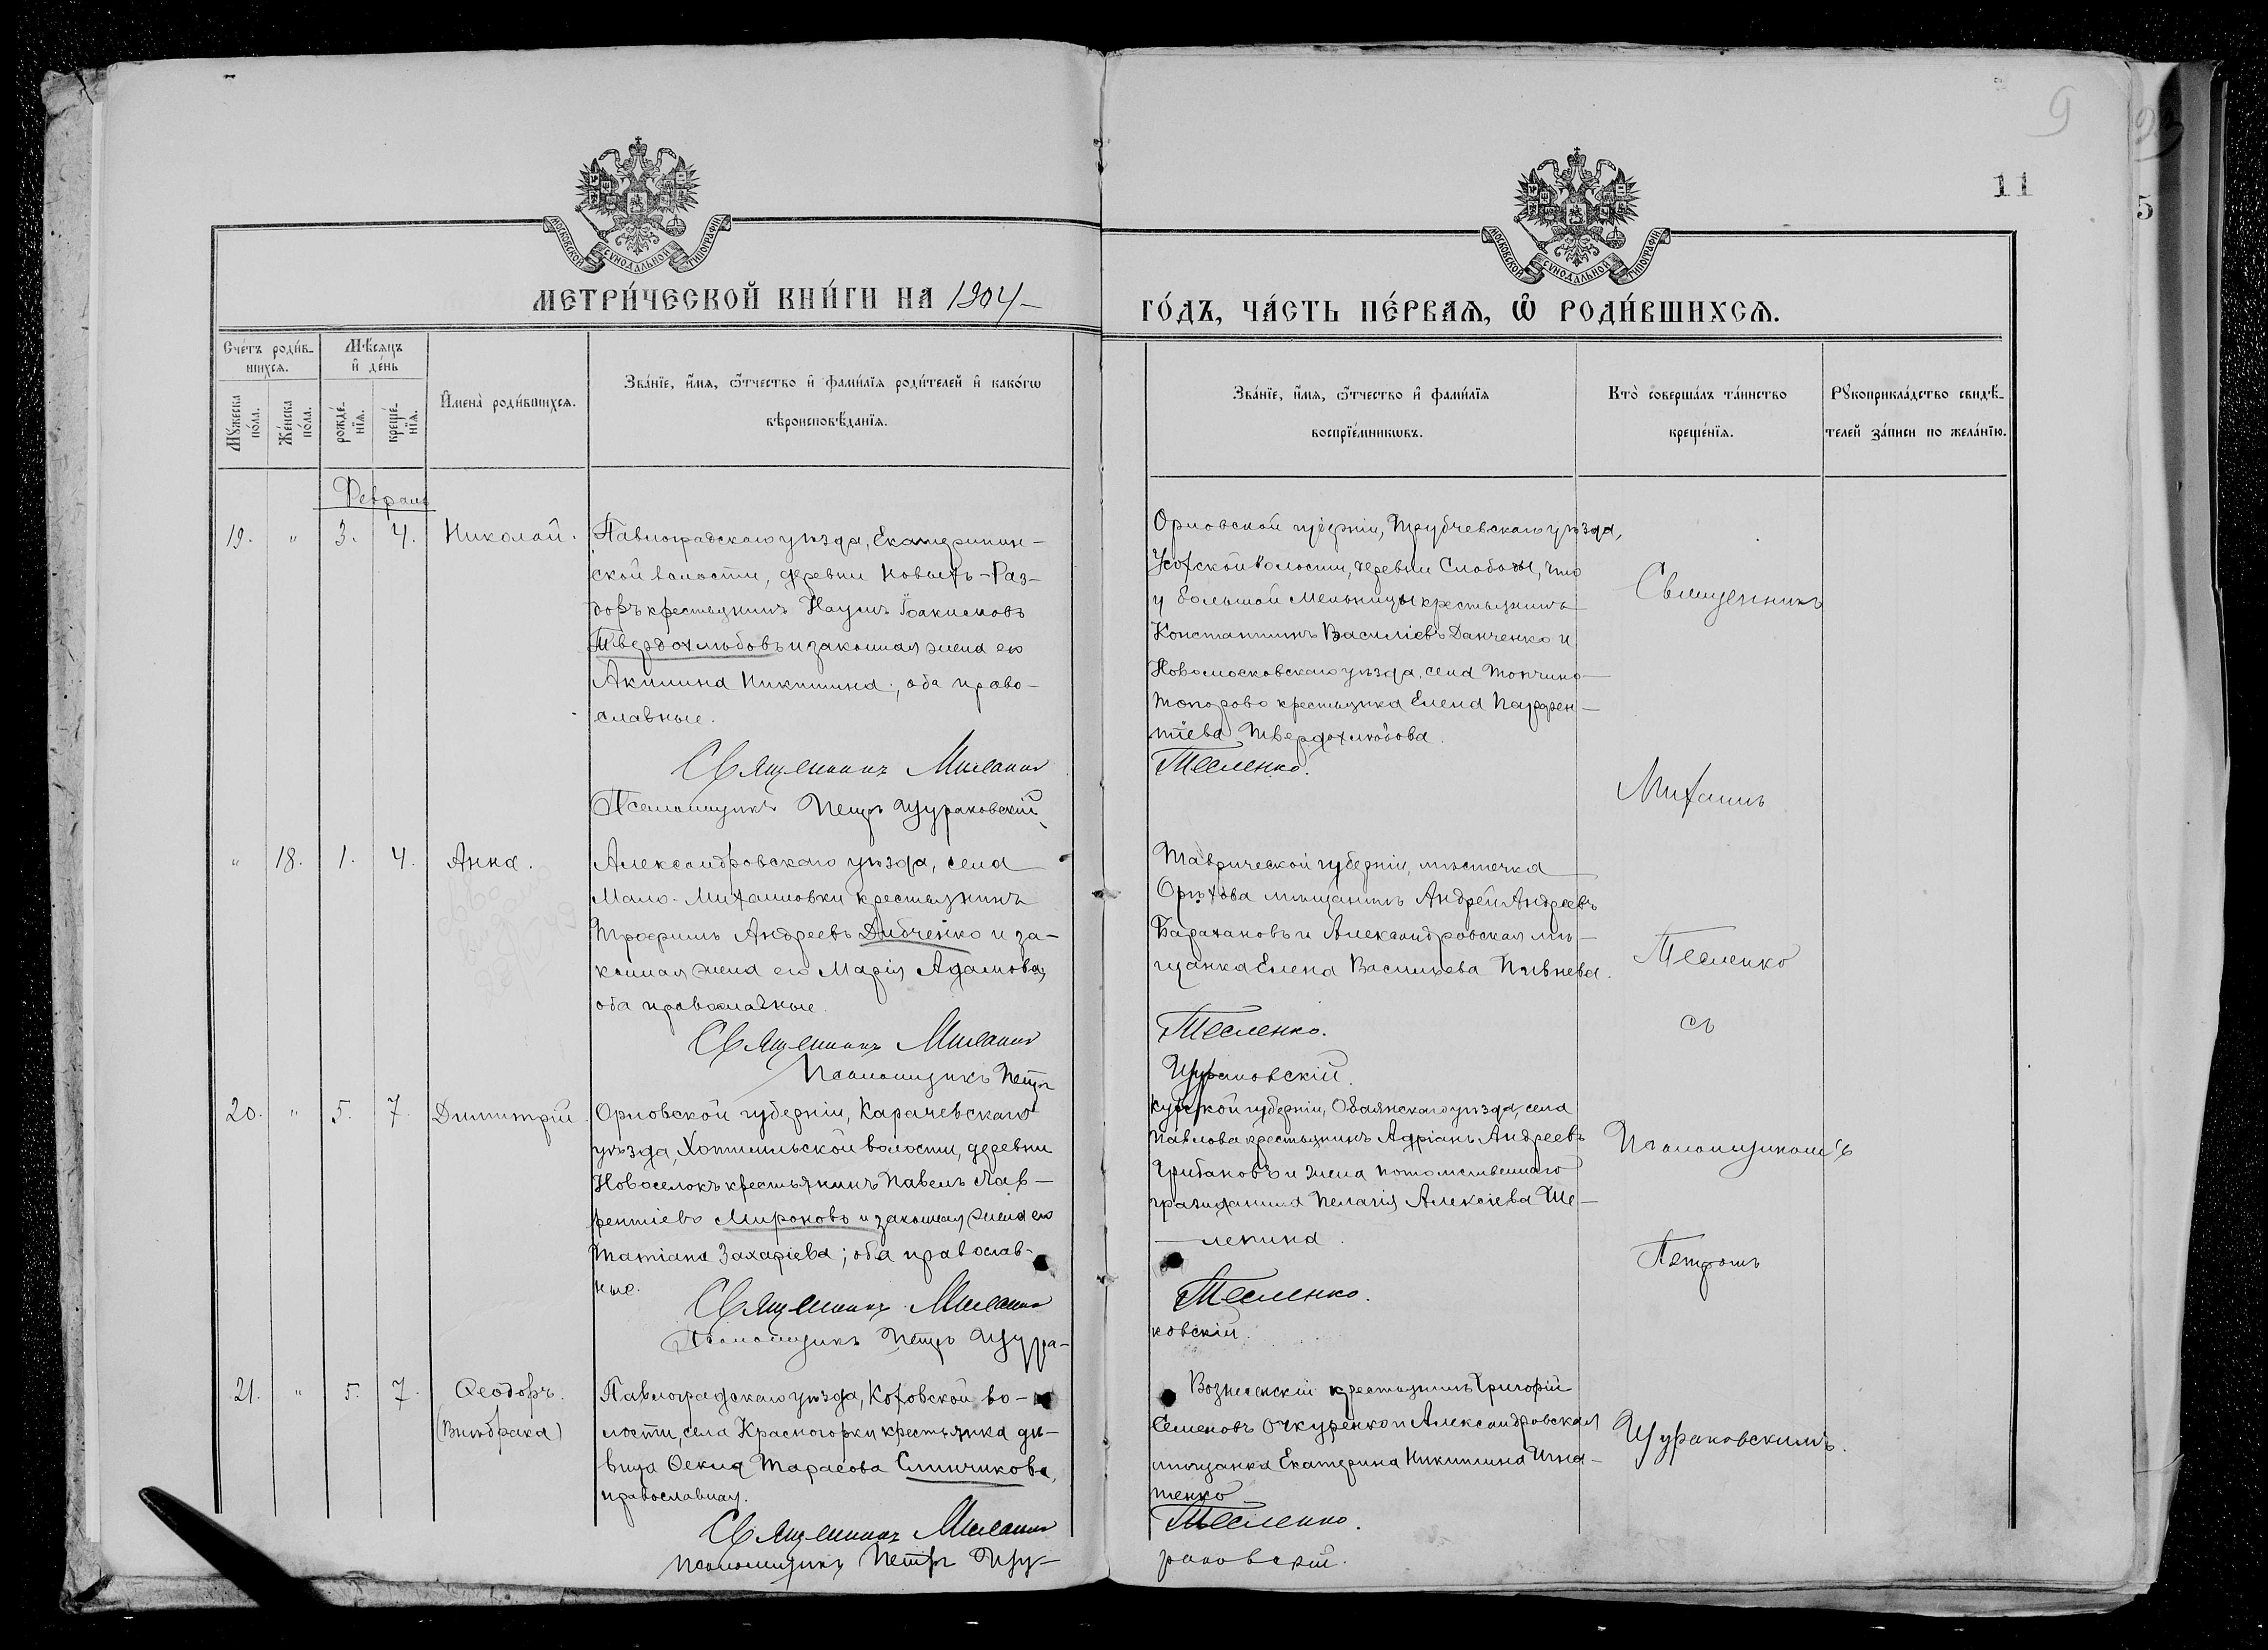 9
11
5
МОСКОВСКОЙ СУНОДАЛЬНОЙ ТИПОГРАФІИ
МОСКОВСКОЙ СУНОДАЛЬНОЙ ТИПОГРАФІИ
МЕТРИ́ЧЕСКОЙ КНИ́ГИ НА 1904
ГО́ДЪ, ЧА́СТЬ ПЕ́РВАЯ, Ѡ РОДИ́ВШИХСЯ.
Сче́тъ роди́в-
шихся.
Мѣ́сяцъ
и де́нь
Му́жеска
по́ла.
Же́нска
по́ла.
рожде́-
нія.
креще́-
нія.
Имена̀ роди́вшихся.
Зва́ніе, и́мя, ѻ́тчество и фами́лія роди́телей и како́гѡ
вѣроисповѣ́данія.
Зва́ніе, и́мя, ѻ́тчество и фами́лія
воспріе́мникѡвъ.
Кто̀ соверша́лъ та́инство
креще́нія.
Рукоприкла́дство свидѣ́-
телей за́писи по жела́нію.
Февраль
19. " 3. 4. Николай.
Павлоградскаго уѣзда, Екатеринин-
ской волости, деревни Новыхъ-Раз-
доръ крестьянинъ Наумъ
Твердохлѣбовъ и законная жена его
Акилина Никитина; оба право-
славные.
Священникъ Михаилъ
Псаломщикъ Петръ Щураковскій
Орловской губерніи, Трубчевскаго уѣзда,
волости, деревни Слободы, что
у большой мельницы крестьянинъ
Константинъ Василіевъ Данченко и
Новомосковскаго уѣзда, села
крестьянка Елена Парфен-
тіева Твердохлѣбова.
Тесленко.
Священникъ
Михаилъ
" 18. 1. 4. Анна.
Александровскаго уѣзда, села
Мало-Михаиловки крестьянинъ
Трофимъ Андреевъ Дибченко и за-
конная жена его Марія Адамова,
оба православные.
Священникъ Михаилъ
Псаломщикъ Петръ
Таврической губерніи, мѣстечка
Орѣхова мѣщанинъ Андрей Андреевъ
Барахановъ и Александровская мѣ-
щанка Елена Василіева Пивнева.
Тесленко.
Щураковскій.
Тесленко
съ
20. " 5. 7. Димитрій.
Орловской губерніи, Карачевскаго
уѣзда, Хотимльской волости, деревни
Новоселокъ крестьянинъ Павелъ Лав-
рентіевъ Мироновъ и законная жена его
Татіана Захаріева; оба православ-
ные.
Священникъ Михаилъ
Псаломщикъ Петръ Щура-
Курской губерніи, Обоянскаго уѣзда, села
Павлова крестьянинъ Адріанъ Андреевъ
Грибановъ и жена потомственнаго
гражданина Пелагія Алексіева Ше-
лепина.
Тесленко.
ковскій.
Псаломщикомъ
Петромъ
21. " 5. 7. Ѳеодоръ.
(Внѣбрака)
Павлоградскаго уѣзда, Коховской во-
лости, села Красногорки крестьянка дѣ-
вица Ѳекла Тарасова Слинчикова,
православная.
Священникъ Михаилъ
псаломщикъ Петръ Щу-
Вознесенскій крестьянинъ Григорій
Семеновъ Очкуренко и Александровская
мѣщанка Екатерина Никитина Игна-
тенко
Тесленко.
раковскій.
Щураковскимъ.